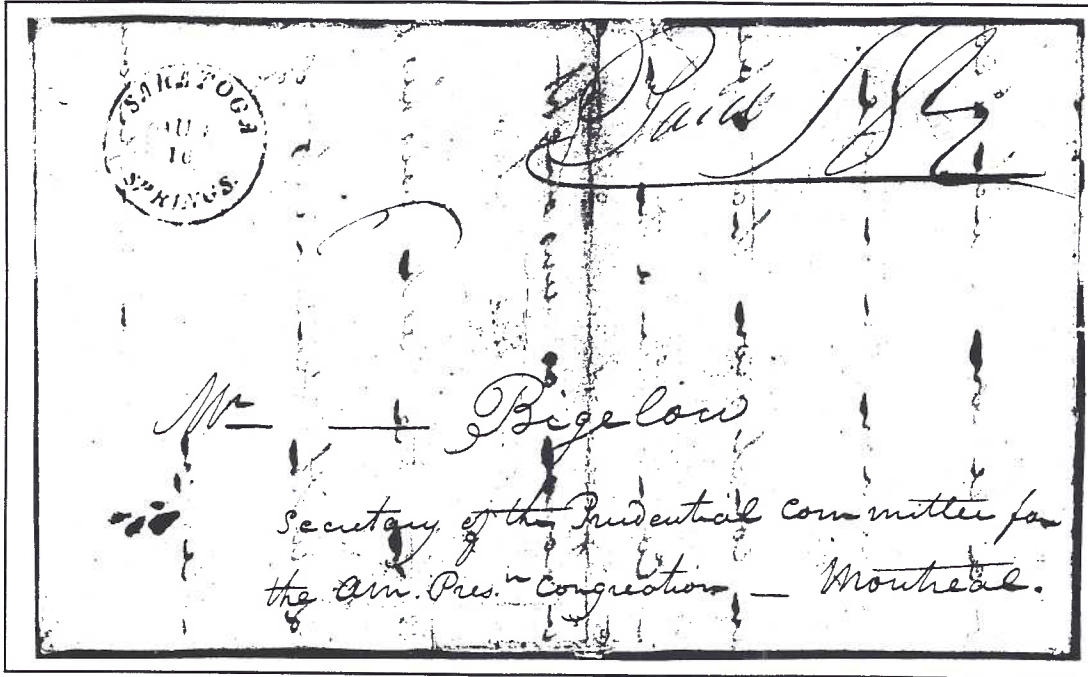 SARATOGA
SPRINGS.
Paid
Mr — Bigelow
Secretary of the Prudential Committee for
the Am. Pres.n Congreation — Montreal.